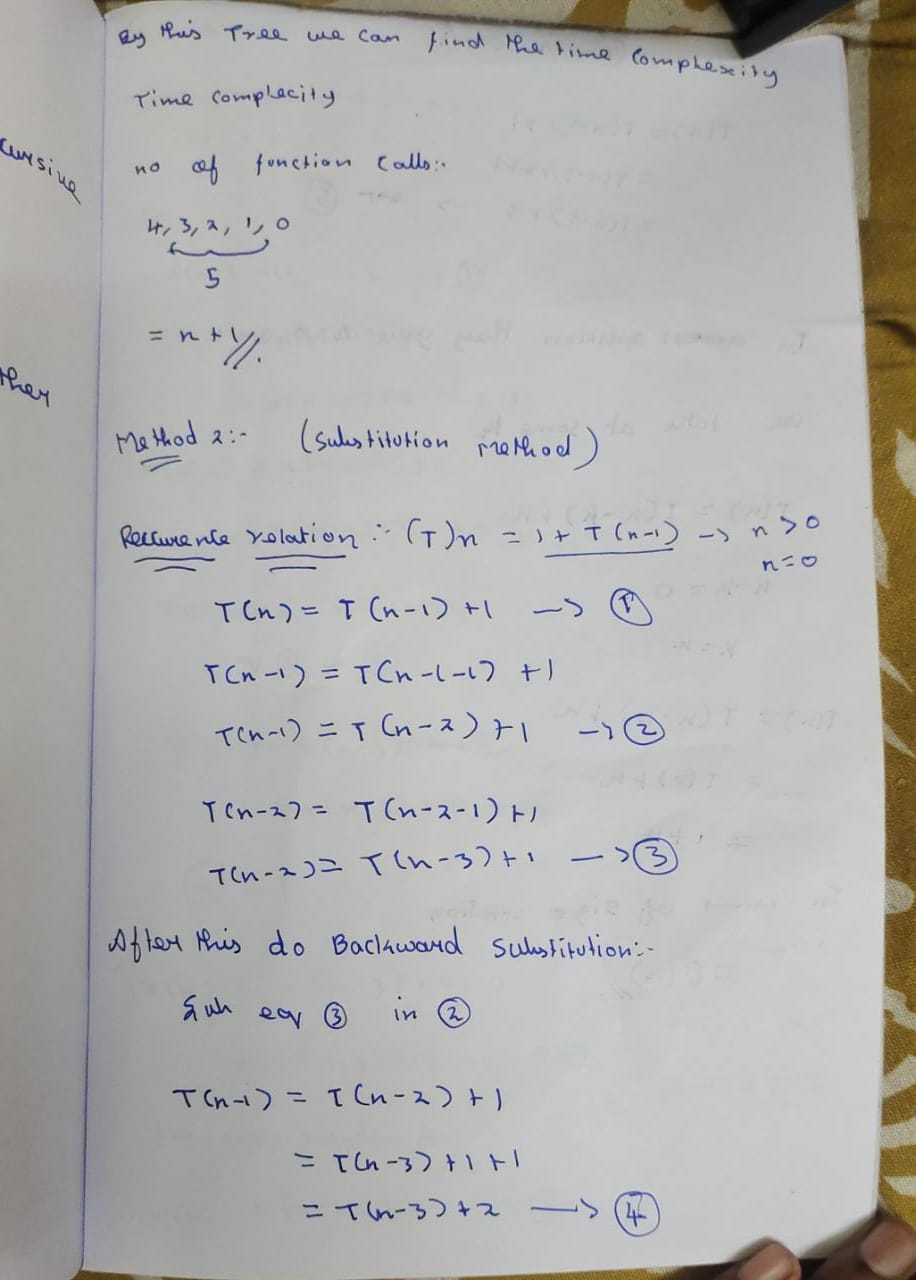 By this Tree we can find the time Complexity
Time Complecity
no of function calls:-
4, 3, 2, 1, 0
5
= n + 1 //.
Method 2:- (Substitution method)
Reccurence relation :- (T)n = 1 + T(n-1) -> n > 0
n = 0
T(n) = T(n-1) + 1 -> ①
T(n-1) = T(n-1-1) + 1
T(n-1) = T(n-2) + 1 -> ②
T(n-2) = T(n-2-1) + 1
T(n-2) = T(n-3) + 1 -> ③
After this do Backward Substitution:-
Sub eq ③ in ②
T(n-1) = T(n-2) + 1
= T(n-3) + 1 + 1
= T(n-3) + 2 -> ④